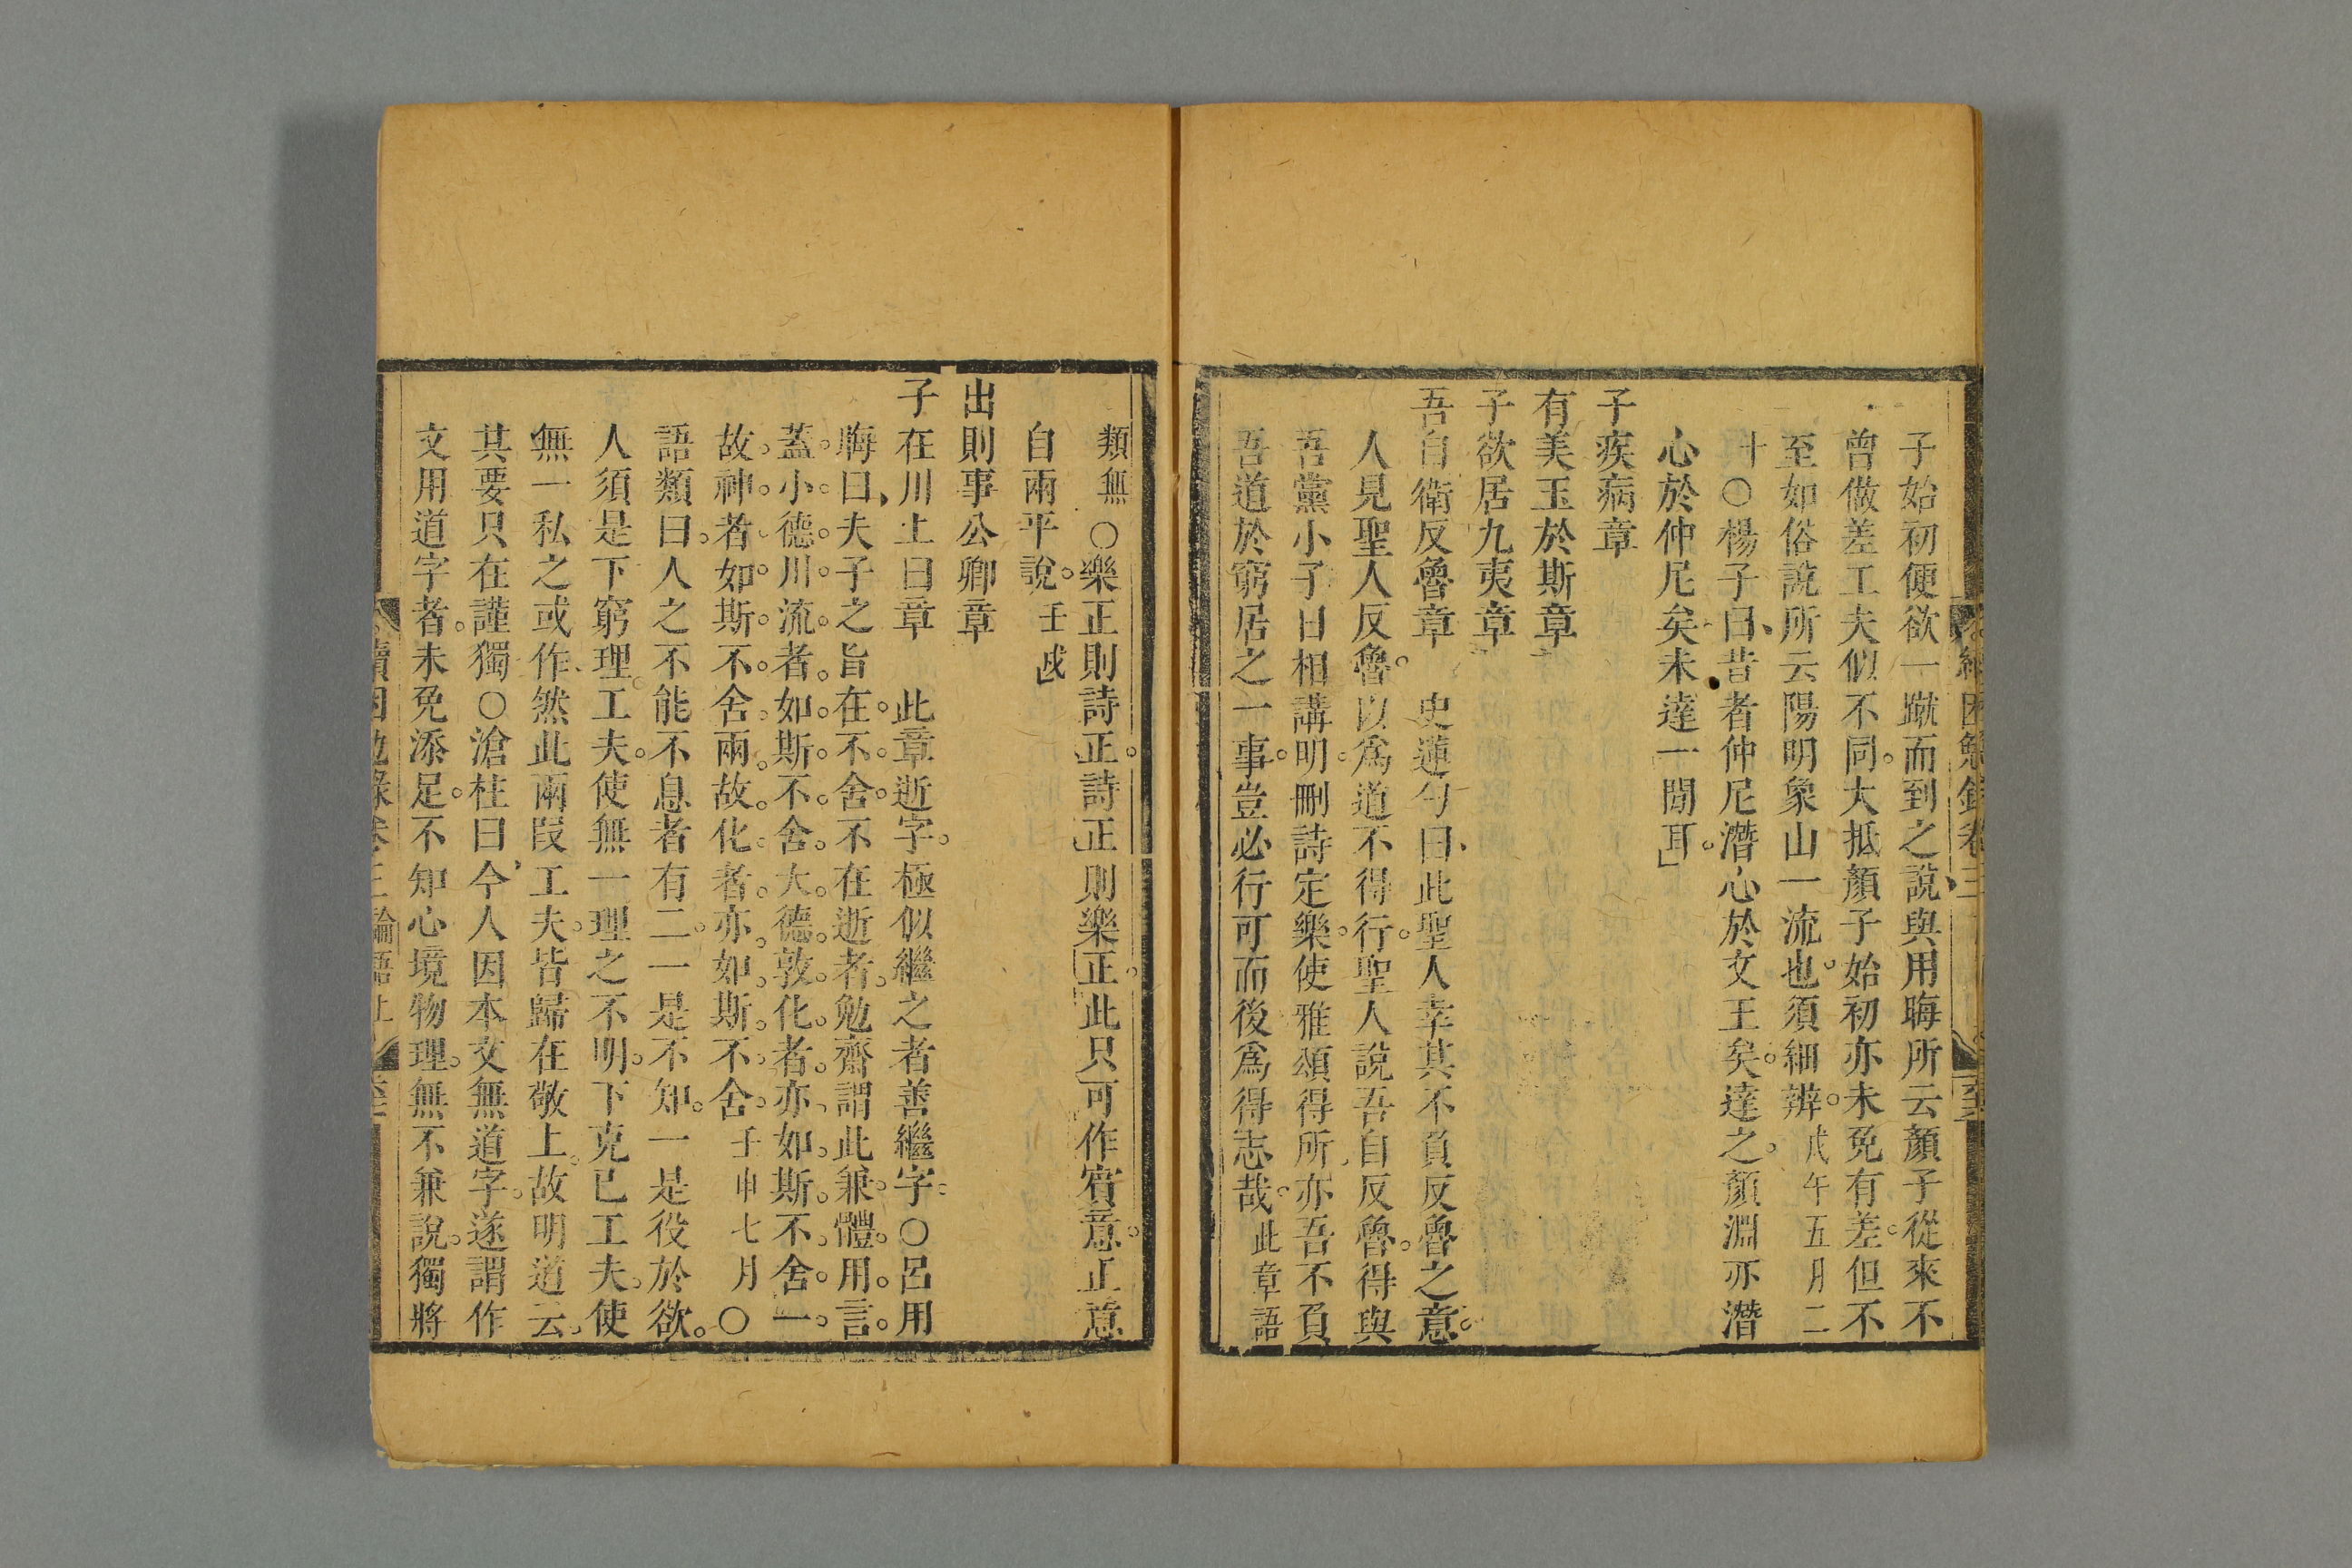 子始初便欲一蹴而到之說與用晦所云顏子從來不
曾做差工夫似不同大抵顏子始初亦未免有差但不
至如俗說所云陽明象山一流也須細辨戊午五月二
十○楊子曰昔者仲尼潛心於文王矣達之顏淵亦潛
心於仲尼矣未達一間耳
子疾病章
有美玉於斯章
子欲居九夷章
吾自衛反魯章　史蓮勺曰此聖人幸其不負反魯之意
人見聖人反魯以爲道不得行聖人說吾自反魯得與
吾黨小子日相講明刪詩定樂使雅頌得所亦吾不負
吾道於窮居之一事豈必行可而後爲得志哉此章語
類無○樂正則詩正詩正則樂正此只可作賓意正意
自兩平說壬戌
出則事公卿章
子在川上曰章　此章逝字極似繼之者善繼字○呂用
晦曰夫子之旨在不舍不在逝者勉齋謂此兼體用言
蓋小德川流者如斯不舍大德敦化者亦如斯不舍一
故神者如斯不舍兩故化者亦如斯不舍壬申七月○
語類曰人之不能不息者有二一是不知一是役於欲
人須是下窮理工夫使無一理之不明下克已工夫使
無一私之或作然此兩段工夫皆歸在敬上故明道云
其要只在謹獨○滄柱曰今人因本文無道字遂謂作
文用道字者未免添足不知心境物理無不兼說獨將
續困勉錄卷三論語上